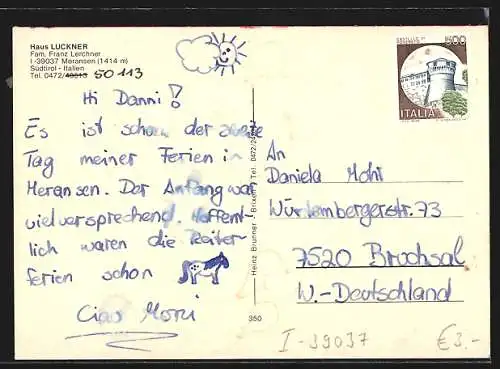 Haus LUCKNER
Fam. Franz Lerchner
I-39037 Meransen (1414 m)
Südtirol - Italien
Tel. 0472/ 50 113
Hi Danni!
Es ist schon der zweite
Tag meiner Ferien in
Meransen. Der Anfang war
vielversprechend. Hoffent-
lich waren die Reiter-
ferien schon
Ciao Moni
Heinz Brunner - Brixen / Tel. 0472/
350
500
ITALIA
An
Daniela Mohr
Württembergerstr. 73
7520 Bruchsal
W.-Deutschland
I-39037
€ 3.-